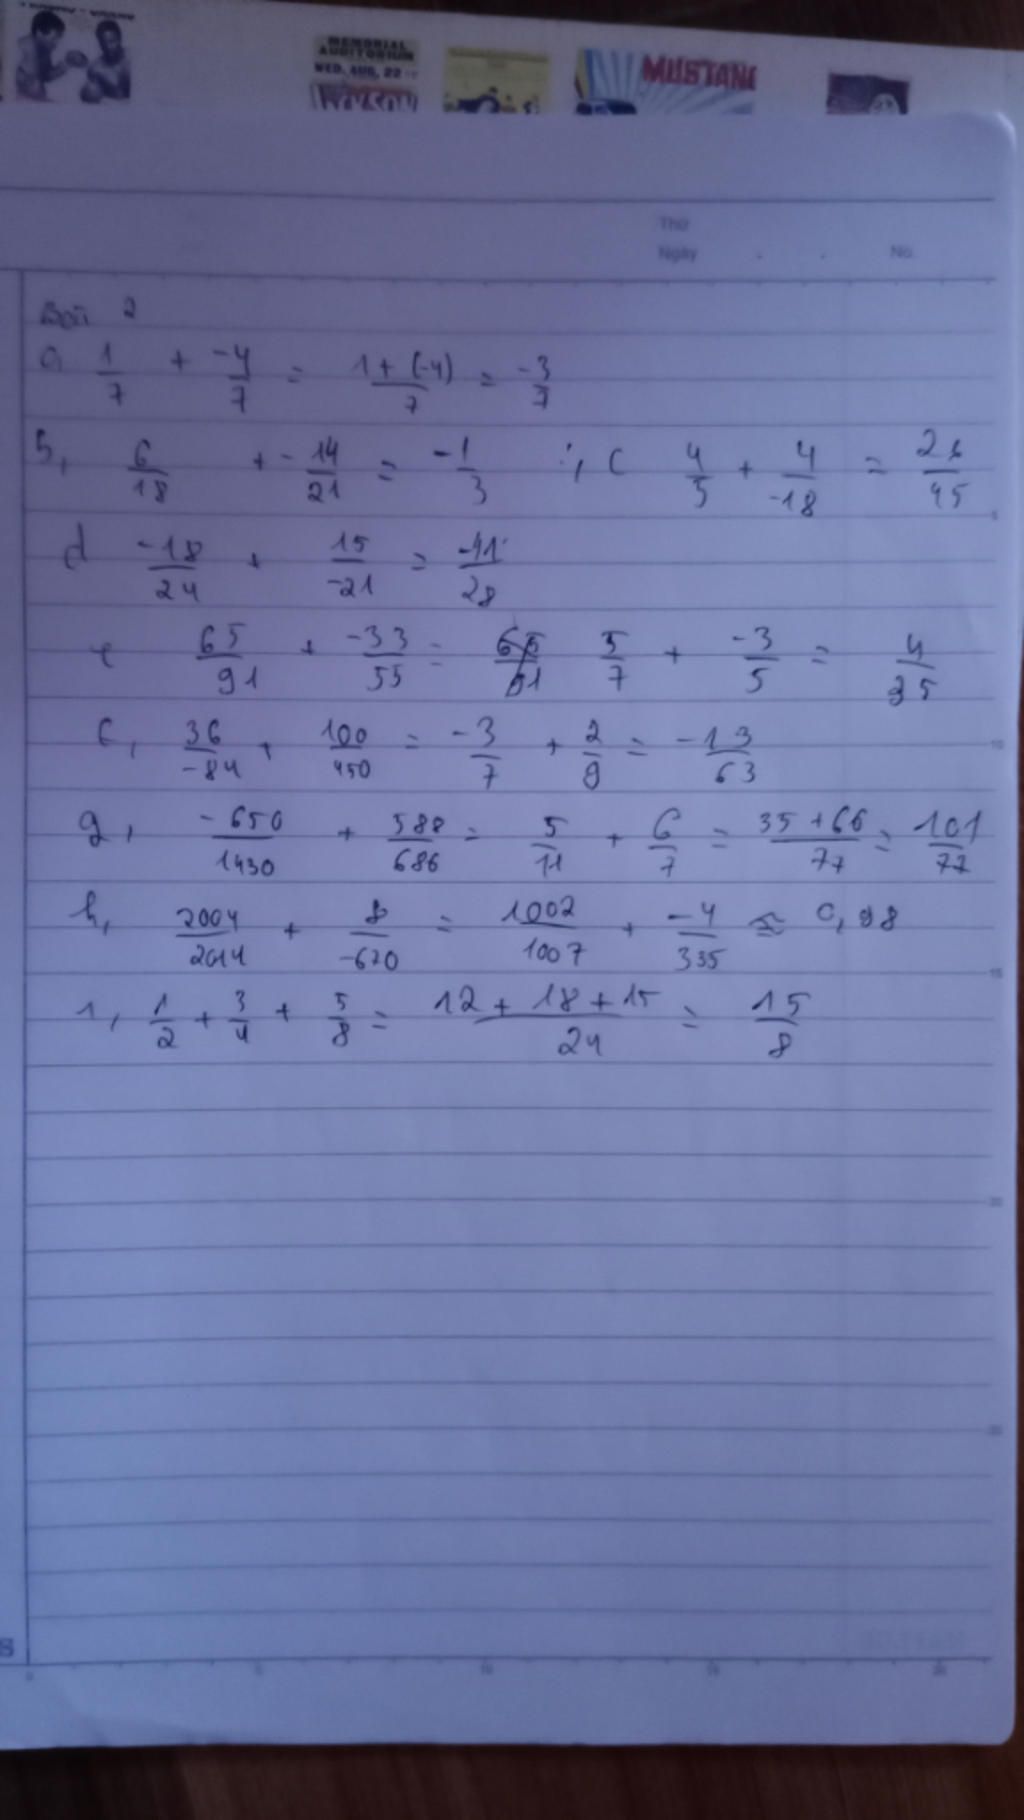 MEMORIAL
AUDITORIUM
WED. AUG. 22
MUSTANG
Thứ
Ngày . . No.
Bài 2
a, 1/7 + -4/7 = 1+(-4)/7 = -3/7
b, 6/18 + -14/21 = -1/3 ; c 4/5 + 4/-18 = 26/45
d -18/24 + 15/-21 = -41/28
e 65/91 + -33/55 = 5/7 + -3/5 = 4/35
f, 36/-84 + 100/450 = -3/7 + 2/9 = -13/63
g, -650/1430 + 588/686 = 5/11 + 6/7 = 35+66/77 = 101/77
h, 2004/2014 + 8/-670 = 1002/1007 + -4/335 ≈ 0,98
1, 1/2 + 3/4 + 5/8 = 12+18+15/24 = 15/8